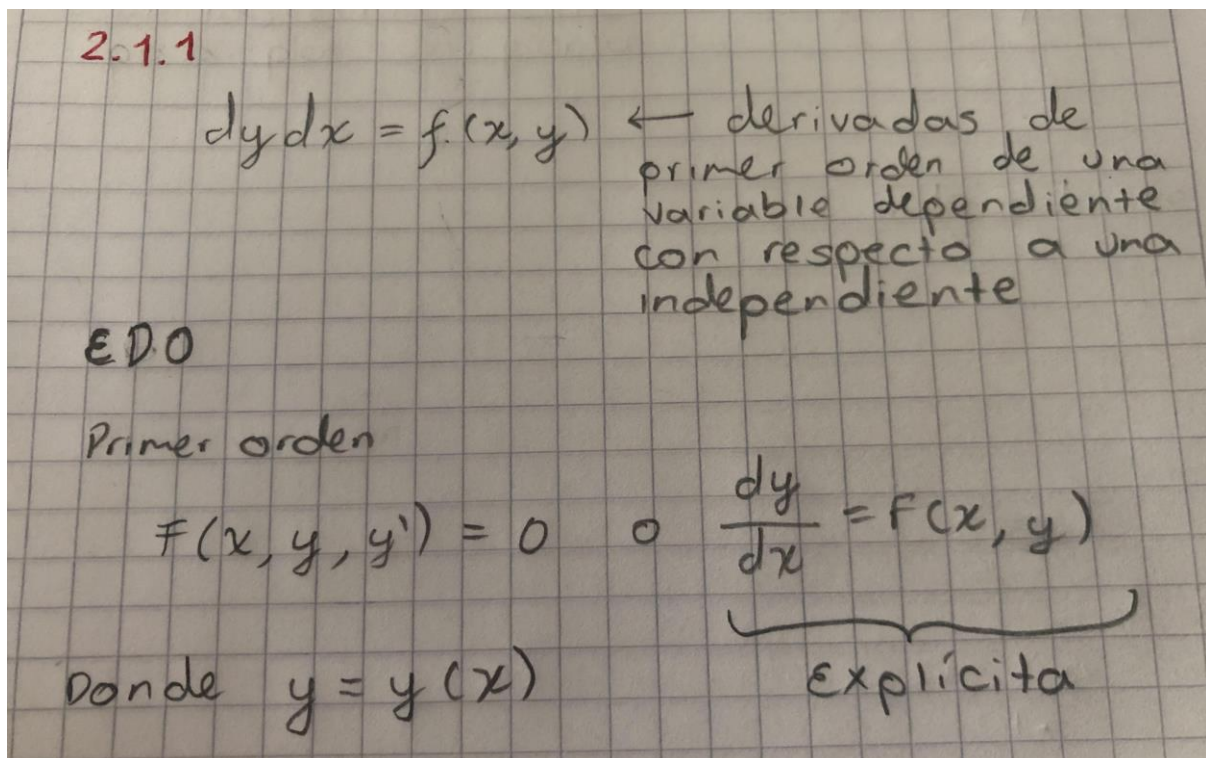 2.1.1
dy dx = f.(x, y) ← derivadas de
primer orden de una
variable dependiente
con respecto a una
independiente
E D.O
Primer orden
F(x, y, y') = 0 o dy/dx = F(x, y)
Donde y = y (x) Explícita